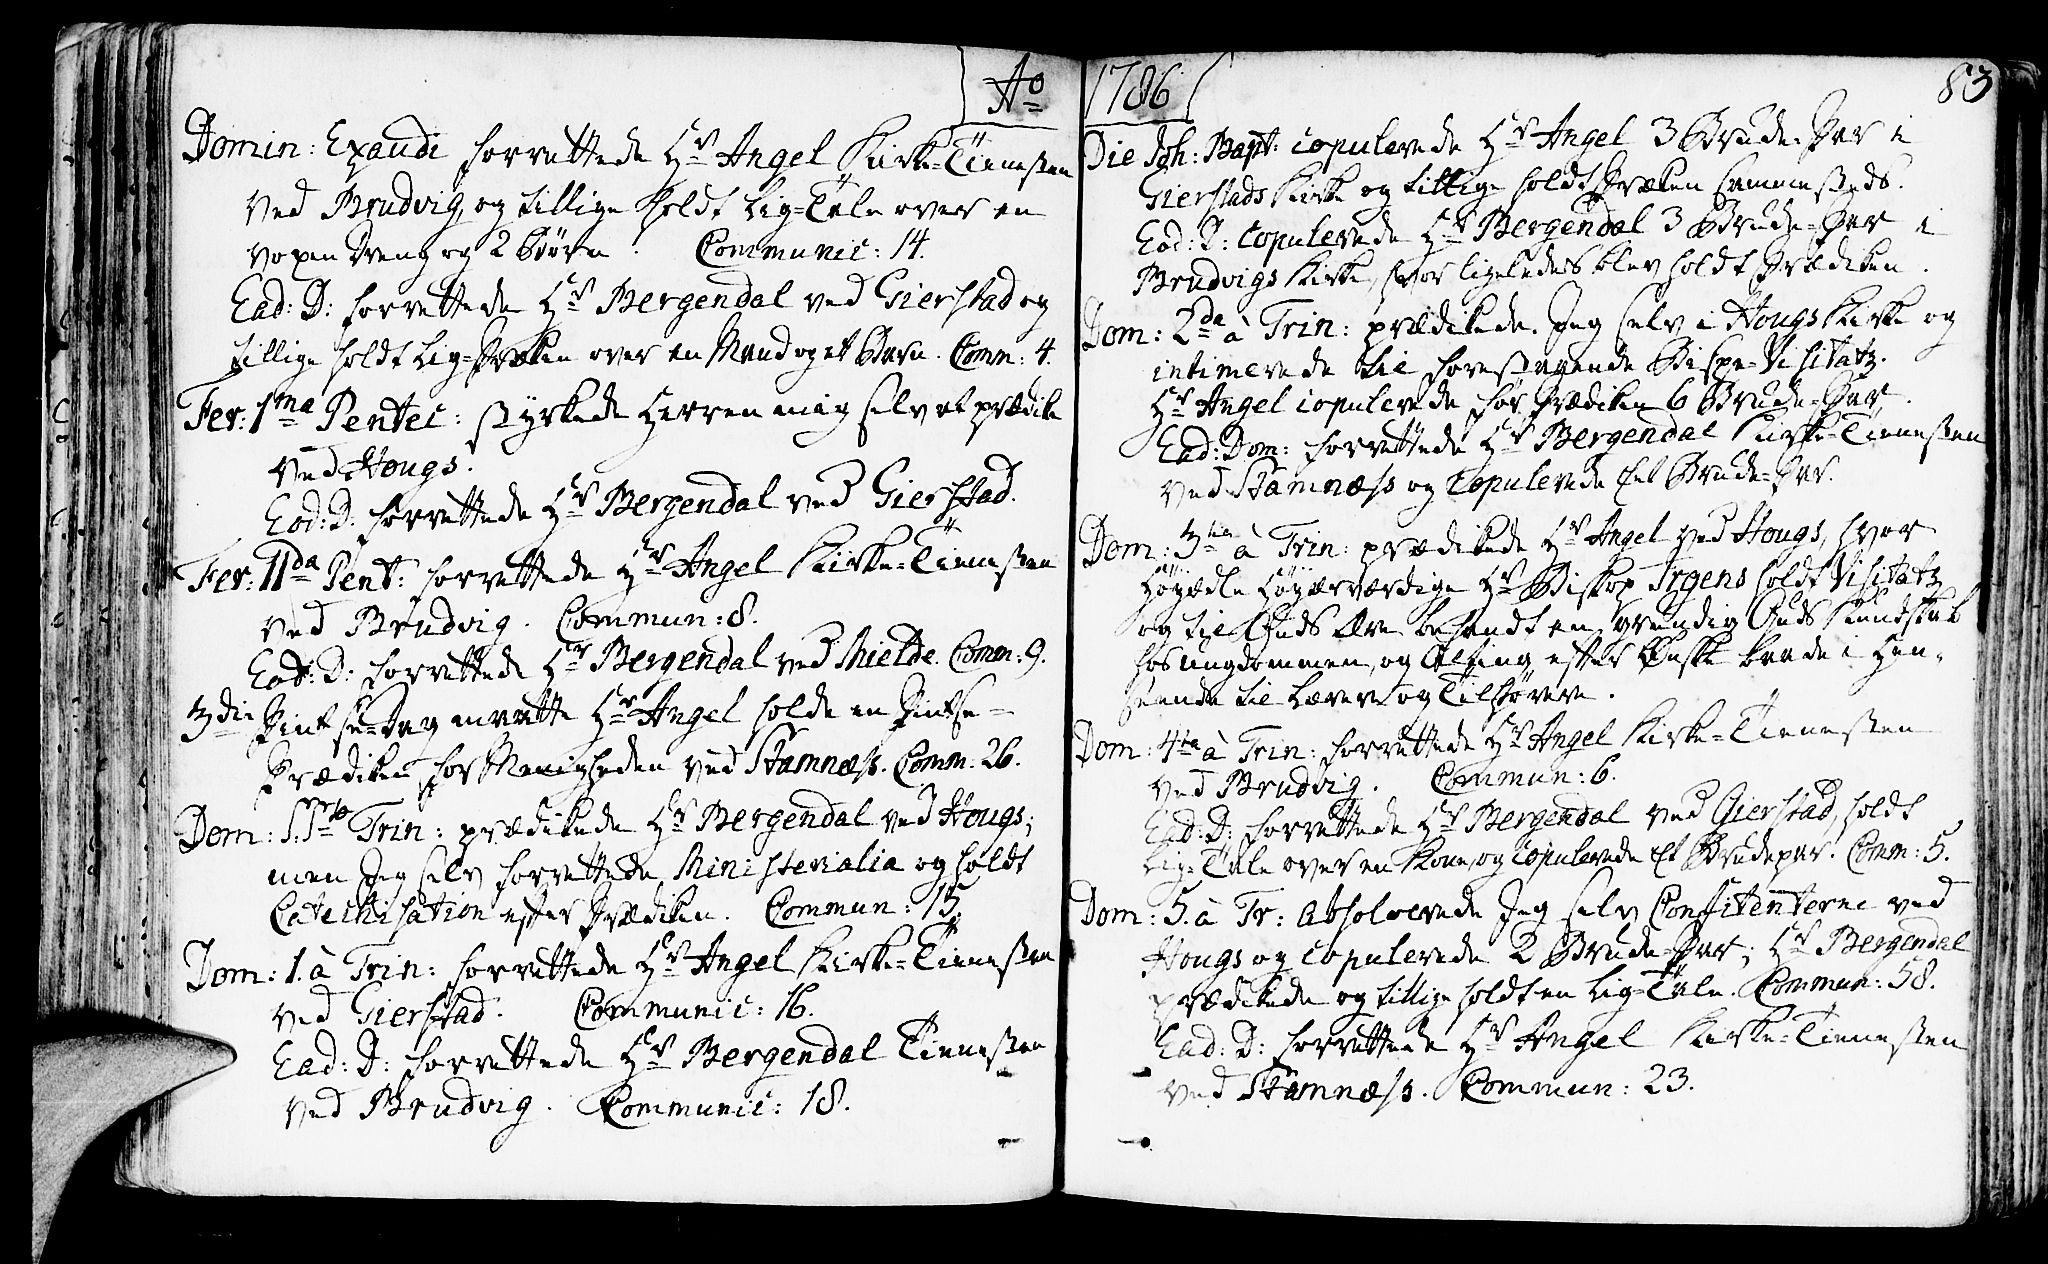 Ao 1786
83
Domin: Exaudi forrettede Hr Angel Kirke-Tienesten
ved Brudvig, og tillige holdt Lig-Tale over en
voxen Dreng og 2 Børn. Communic: 14.
Ead: D: forrettede Hr Bergendal ved Gierstad og
tillige holdt Lig-Præken over en Mand og et Barn. Comm: 4.
Fer: 1ma Pentec: styrkede Herren mig selv at prædike
ved Hougs.
Eod: D: forrettede Hr Bergendal ved Gierstad.
Fer: IIda Pent: forrettede Hr Angel Kirke-Tienesten
ved Brudvig. Commun: 8.
Eod: D: forrettede Hr Bergendal ved Mielde. Comm: 9.
3die Pintse-Dag maatte Hr Angel holde en Pintse-
Prædiken for Menigheden ved Stamnæss. Comm: 26.
Dom: S. Trin: prædikede Hr Bergendal ved Hougs;
men Jeg selv forrettede Ministerialia og holdt
Catechisation efter Prædiken. Commun: 15.
Dom: 1. à Trin: forrettede Hr Angel Kirke-Tienesten
ved Gierstad. Communic: 16.
Ead: D: forrettede Hr Bergendal Tienesten
ved Brudvig. Communic: 18.
Die Joh: Bapt: copulerede Hr Angel 3 Brude-Par i
Gierstads Kirke og tillige holdt Præken sammesteds.
Eod: D: copulerede Hr Bergendal 3 Brude-Par i
Brudvigs Kirke, hvor ligeledes blev holdt Prædiken.
Dom: 2da à Trin: prædikede Jeg selv i Hougs Kirke og
intimerede til forestaaende Bispe-Visitatz.
Hr Angel copulerede før Prædiken 6 Brude-Par.
Ead: Dom: forrettede Hr Bergendal Kirke-Tienesten
ved Stamnæss og copulerede Et Brude-Par.
Dom: 3tia à Trin: prædikede Hr Angel ved Hougs, hvor
Høyædle Høyærværdige Hr Biskop Irgens holdt Visitatz
og til Guds Ære befandt en grundig Guds Kundskab
hos ungdommen, og Alting efter Ønske baade i Hen-
seende til Lærere og Tilhørere.
Dom: 4ta à Trin: forrettede Hr Angel Kirke-Tienesten
ved Brudvig. Commun: 6.
Ead: D: forrettede Hr Bergendal ved Gierstad, holdt
Lig-Tale over en Kone, og copulerede Et Brudepar. Comm: 5.
Dom: 5. à Tr: Absolverede Jeg selv Confitenterne ved
Hougs og copulerede 2 Brude-Par; Hr Bergendal
prædikede og tillige holdt en Lig-Tale. Commun: 58.
Ead: D: forrettede Hr Angel Kirke-Tienesten
ved Stamnæss. Commun: 23.